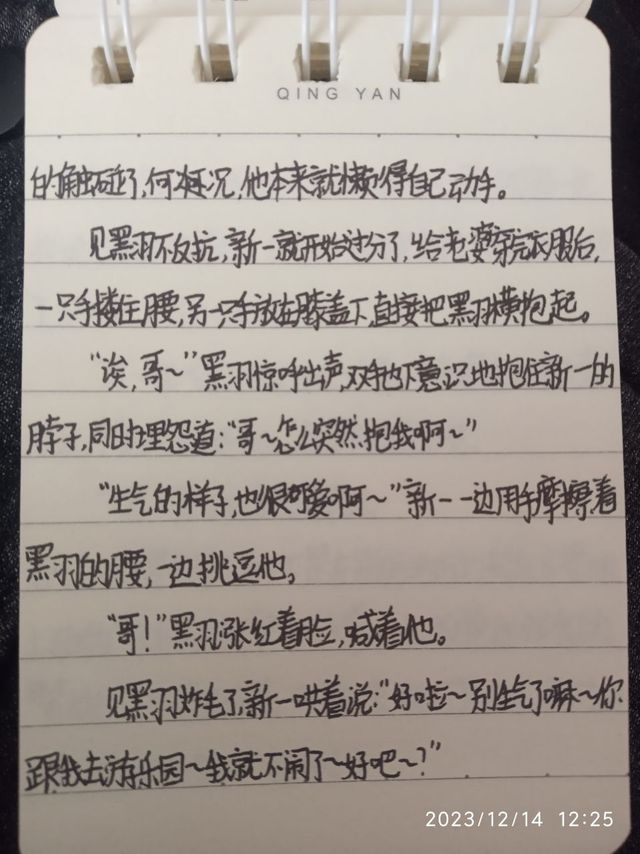 QING YAN
的触碰了,何况,他本来就懒得自己动手。
见黑羽不反抗,新一就开始过分了,给老婆穿完衣服后,
一只手搂住腰,另一只手放在膝盖下,直接把黑羽横抱起。
“诶,哥~”黑羽惊呼出声,双手也下意识地抱住新一的
脖子,同时埋怨道:“哥~怎么突然抱我啊~”
“生气的样子,也很可爱啊~”新一一边用手摩擦着
黑羽的腰,一边挑逗他。
“哥!”黑羽涨红着脸,喊着他。
见黑羽炸毛了,新一哄着说:“好啦~别生气了嘛~你
跟我去游乐园~我就不闹了~好吧~?”
2023/12/14 12:25